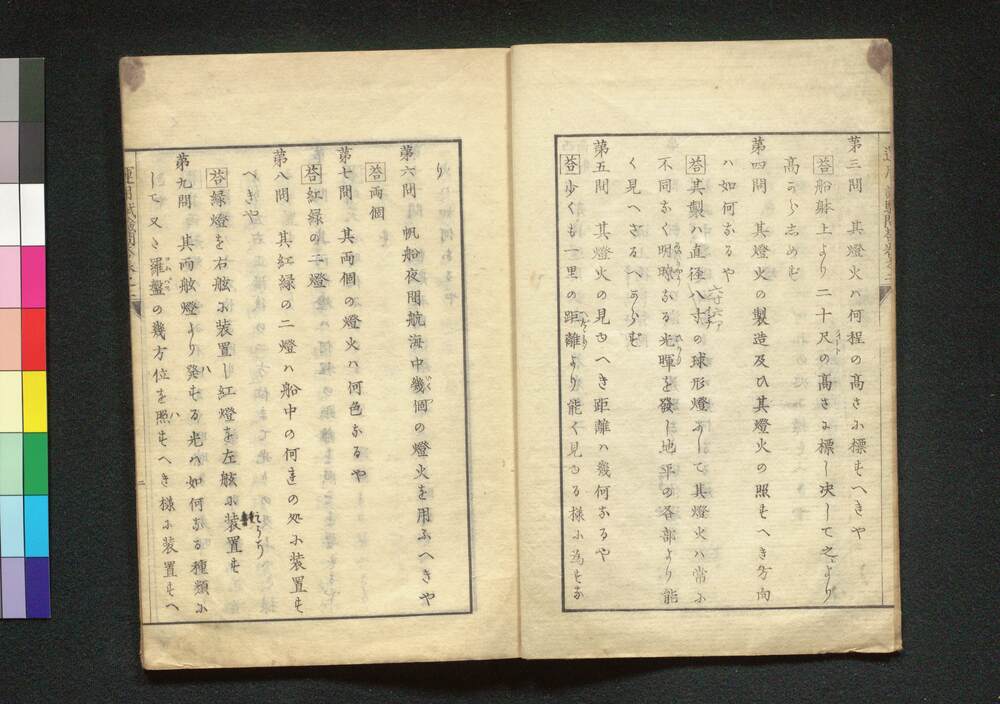 第三問　其燈火ハ何程の高さニ標すへきや
答 船躰上より二十尺の高さに標し决して之より
高からしめす
第四問　其燈火の製造及ひ其燈火の照すへき方向
ハ如何なるや
答 其製ハ直径八寸の球形燈にして其燈火ハ常ニ
不同なく明瞭なる光暉を發し地平の各部より能
く見へさるへからす
第五問　其燈火の見ゆへき距離ハ幾何なるや
答 少くも一里の距離より能く見ゆる様ニ為すな
り
第六問　帆船夜間航海中幾個の燈火を用ふへきや
答 両個
第七問　其両個の燈火ハ何色なるや
答 紅緑の二燈
第八問　其紅緑の二燈ハ船中の何れの処ニ装置す
へきや
答 緑燈を右舷ニ装置し紅燈を左舷ニ装置す
第九問　其両舷燈より發する光ハ如何なる種類ニ
して又た羅盤の幾方位を照すへき様ニ装置すへ